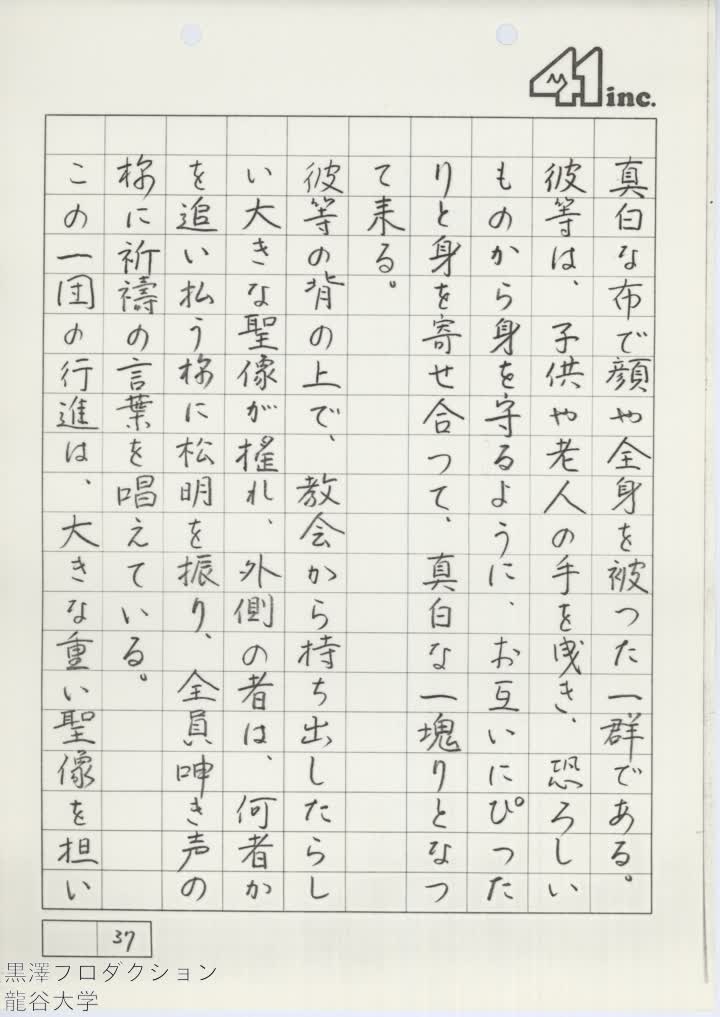 41 inc.
真白な布で顔や全身を被つた一群である。
彼等は、子供や老人の手を曳き、恐ろしい
ものから身を守るように、お互いにぴつた
りと身を寄せ合つて、真白な一塊りとなつ
て来る。
彼等の背の上で、教会から持ち出したらし
い大きな聖像が搖れ、外側の者は、何者か
を追い払う様に松明を振り、全員呻き声の
様に祈禱の言葉を唱えている。
この一団の行進は、大きな重い聖像を担い
37
黒澤フロダクション
龍谷大学